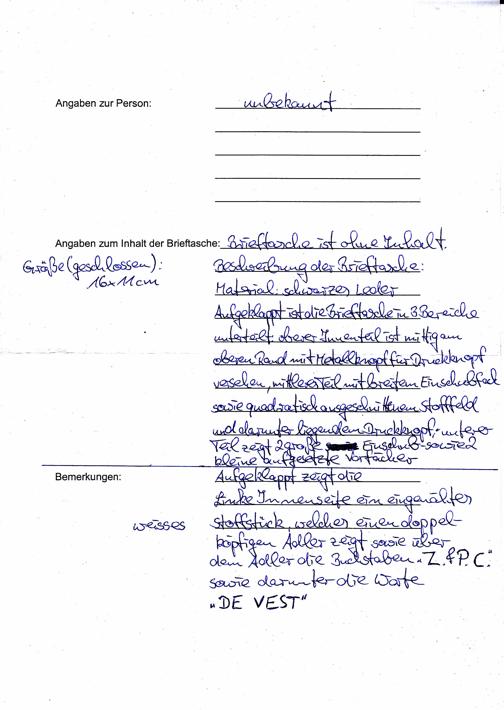 Angaben zur Person: unbekannt
Angaben zum Inhalt der Brieftasche: Brieftasche ist ohne Inhalt.
Größe (geschlossen):
16x11cm
Beschreibung der Brieftasche:
Material: schwarzes Leder
Aufgeklappt ist die Brieftasche in 3 Bereiche
unterteilt. oberer Innenteil ist mittig am
oberen Rand mit Metallknopf für Druckknopf
versehen, mittlerer Teil mit breitem Einschubfach
sowie quadratisch ausgeschnittenem Stofffeld
und darunter liegendem Druckknopf, unterer
Teil zeigt 2 große Einschub- sowie 2
kleine aufgesetzte Vorfächer
Bemerkungen: Aufgeklappt zeigt die
linke Innenseite ein eingenähtes
weisses Stoffstück, welches einen doppel-
köpfigen Adler zeigt sowie über
dem Adler die Buchstaben "Z.f.P.C."
sowie darunter die Worte
"DE VEST"